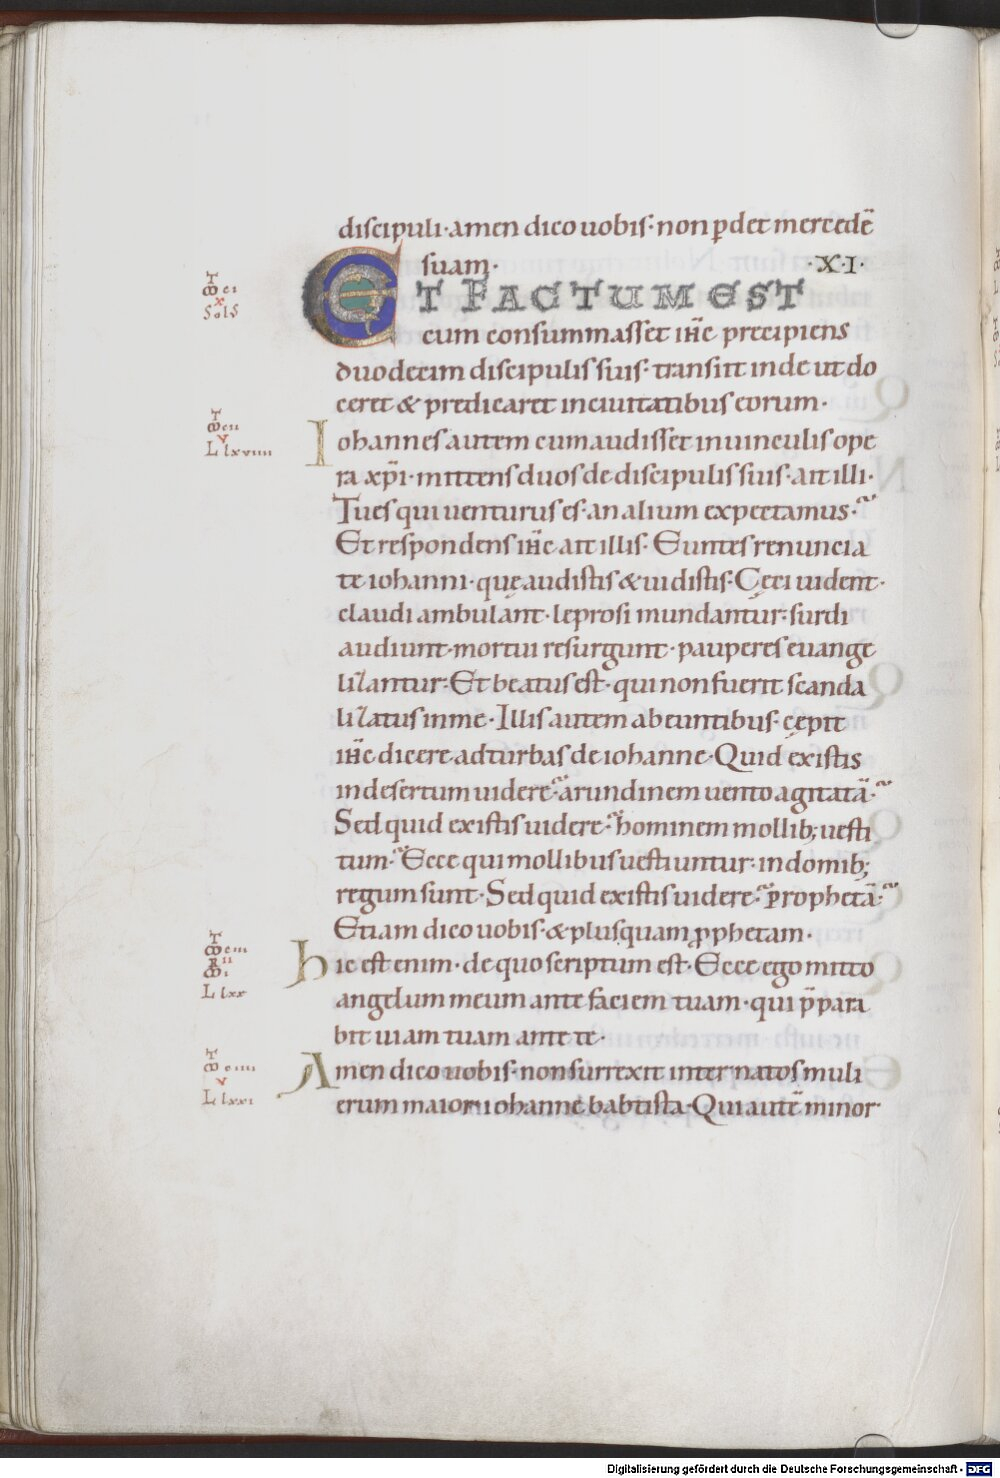 discipuli· amen dico uobis· non ꝑdet mercedē
suam· ·X·I·
ET FACTUM EST
cum consummasset ihc̄ precipiens
duodecim discipulis suis· transiit inde ut do
ceret & predicaret in ciuitatibus eorum·
Iohannes autem cum audisset in uinculis ope
ra xp̄i· mittens duos de discipulis suis· ait illi·
Tu es qui uenturus es· an alium expectamus·
Et respondens ihc̄ ait illis· Euntes renuncia
te iohanni· quę audistis & uidistis· Cęci uident·
claudi ambulant· leprosi mundantur· surdi
audiunt· mortui resurgunt· pauperes euange
lizantur· Et beatus est· qui non fuerit scanda
lizatus in me· Illis autem abeuntibus· cępit
ihc̄ dicere ad turbas de iohanne· Quid existis
in desertum uidere· arundinem uento agitatā·
Sed quid existis uidere· hominem mollib; uesti
tum· Ecce qui mollibus uestiuntur· in domib;
regum sunt· Sed quid existis uidere· prophetā·
Etiam dico uobis· & plus quam ꝓphetam·
hic est enim· de quo scriptum est· Ecce ego mitto
angelum meum ante faciem tuam· qui p̄parа
bit uiam tuam ante te·
Amen dico uobis· non surrexit inter natos muli
erum maior iohanne babtista· Qui autē minor
cı
x
Sol̄s
cıı
v
L lxvıııı
cııı
ıı
ı
L lxx
cıııı
v
L lxxı
Digitalisierung gefördert durch die Deutsche Forschungsgemeinschaft - DFG